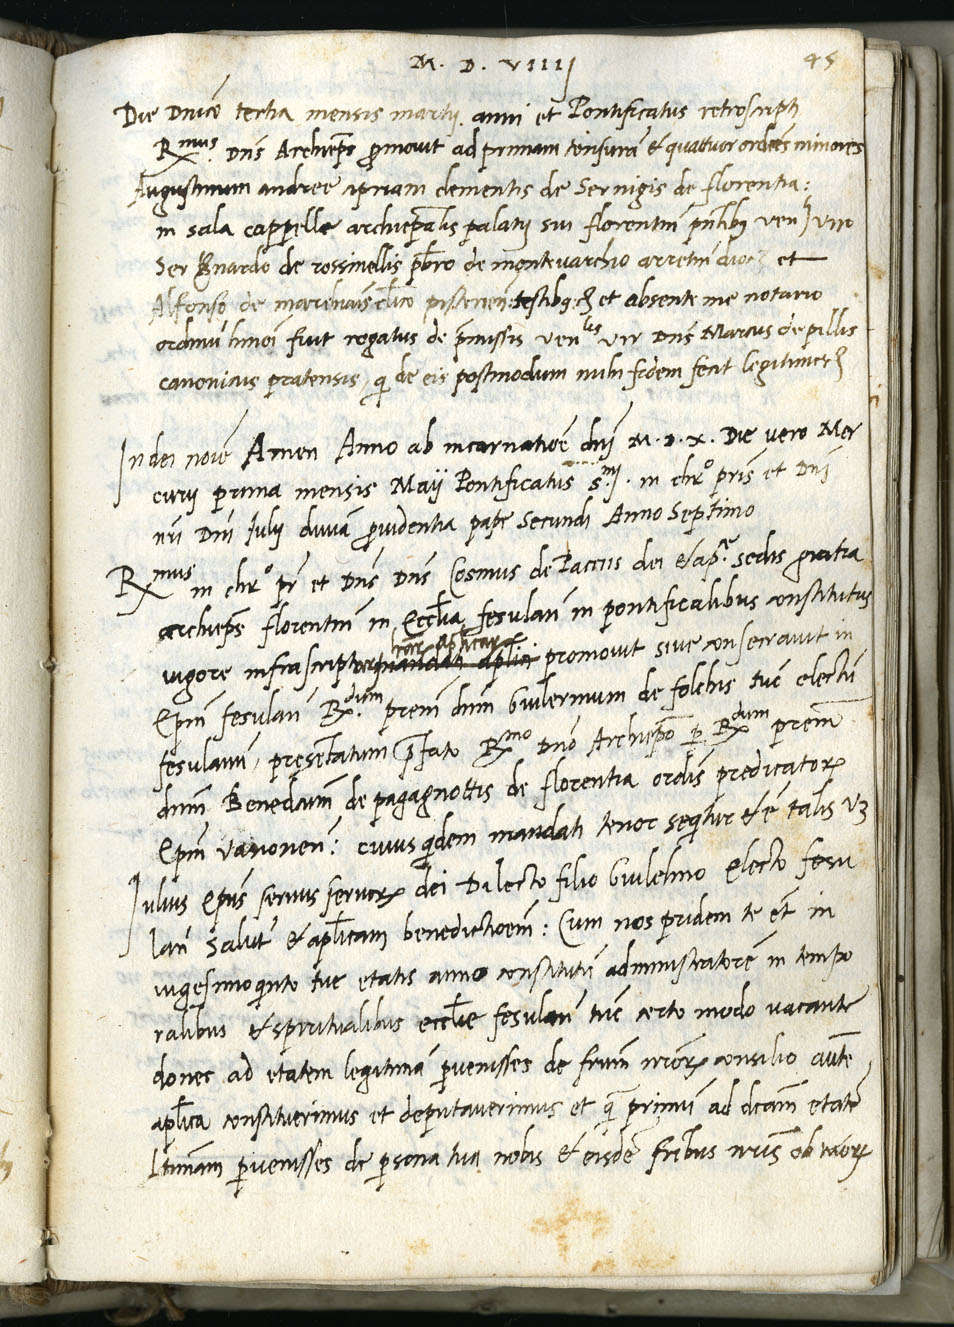 M. D. VIIII
45
Die Dnico tertia mensis martij anni et Pontificatus retroscripti
Rmus Dns Archieps promovit ad primam tonsuram & quattuor ordines minores
Augustinum andree cipriani clementis de Sernigis de florentia:
in sala cappelle archiepalis palatij sui florentin pntibus ven vir
Ser Bnardo de rossinellis pbro de montevarchio arretin dioc et
Alfonso de clico pistorien testibus et absente me notario
ordinū hmoi fuit rogatus de pmissis venlis vir Dns Marcus de pillis
canonicus pratensis, qui de eis postmodum mihi fidem fecit legitimer
In dei noie Amen Anno ab incarnatioe dni M.D.X. Die vero Mer
curij prima mensis Maij Pontificatus Smi in chro pris et Dni
nri Dni Iulij divina providentia pape Secundi Anno Septimo
Rmus in chro pr et Dns Dns Cosmus de Paccijs dei & ap. sedis gratia
archieps florentin in Ecclia fesulan in pontificalibus constitutus
vigore infrascriptar lrar aplicar mandati aplici promovit sive consecravit in
Epm fesulan Rdum prem dnm Guilermum de folchis tuc electū
fesulanū, presentatum pfato Rmo Dno Archiepo p Rdum prem
dnm Benedcum de pagagnottis de florentia ordis predicator
Epm vasionen: cuius quidem mandati tenor sequitur & e talis vz
Iulius Eps servus servor dei Dilecto filio Guilelmo Electo fesu
lan Salute & aplicam benedictioem: Cum nos pridem te et in
vigesimoquinto tue etatis anno constitutū administratorē in tempo
ralibus & spiritualibus ecclie fesulan tuc certo modo vacante
donec ad etatem legitimā pervenisses de frum nror consilio aucte
aplica constituerimus et deputaverimus et quā primū ad dcam etatē
ltimam pervenisses de persona tua nobis & eisdē fribus nris ob tuor